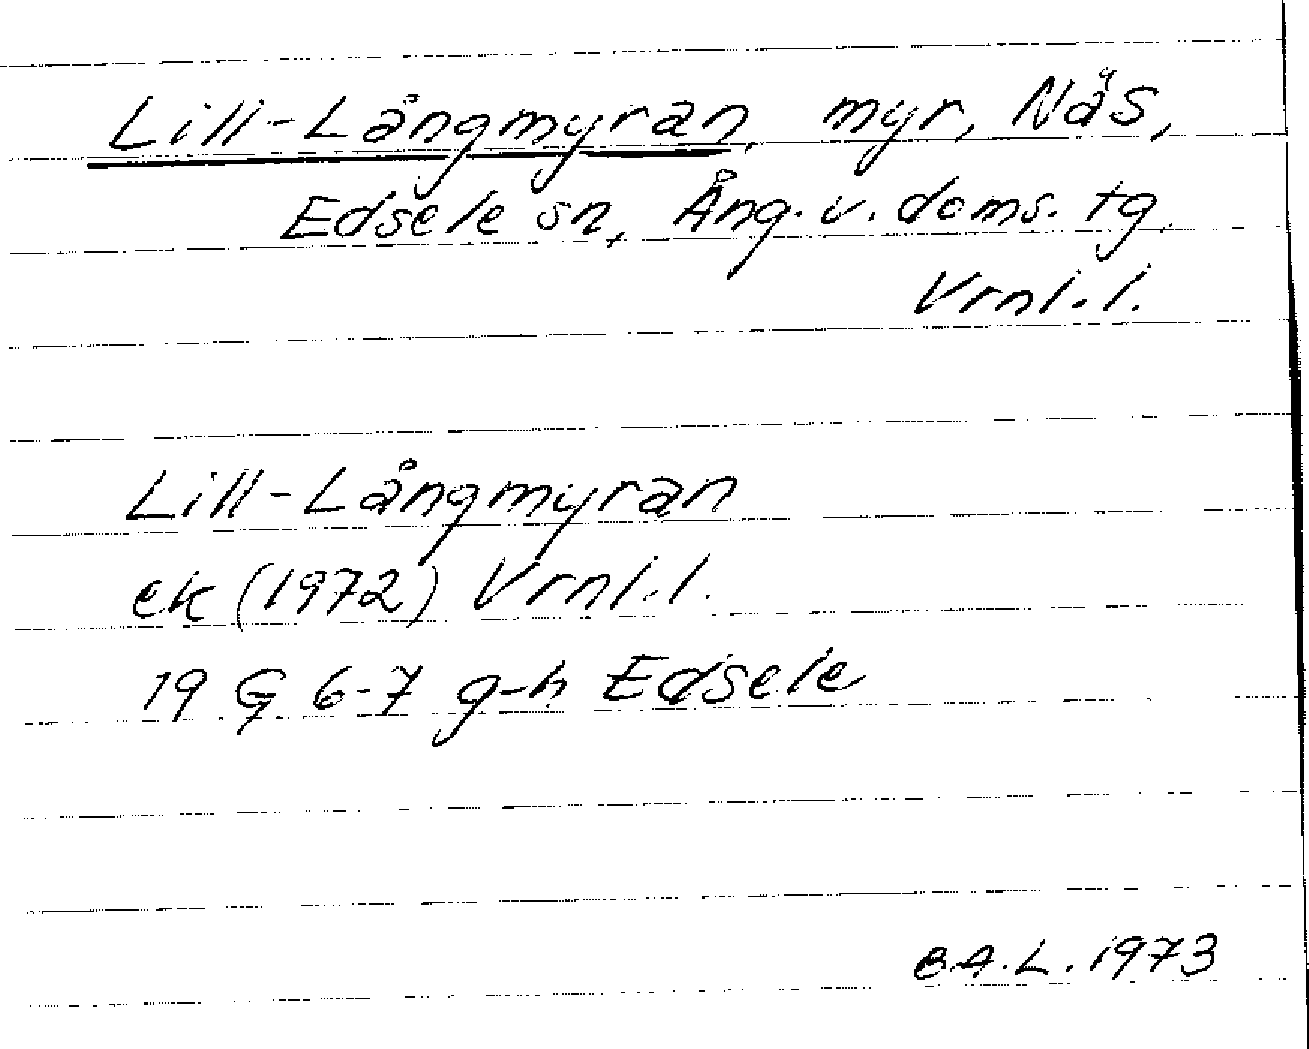 Lill-Långmyran, myr, Näs,
Edsele sn, Ång. v. doms. tg,
Vrnl.l.
Lill-Långmyran
ek (1972) Vrnl.l.
19 G 6-7 g-h Edsele
B.A.L. 1973